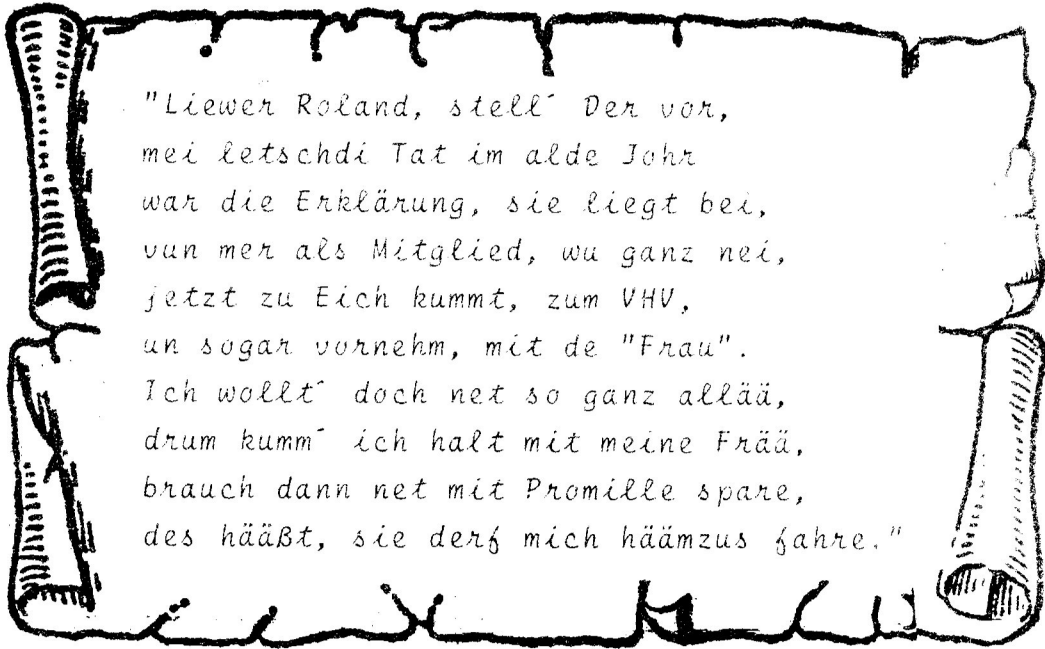 "Liewer Roland, stell´ Der vor,
mei letschdi Tat im alde Johr
war die Erklärung, sie liegt bei,
vun mer als Mitglied, wu ganz nei,
jetzt zu Eich kummt, zum VHV,
un sogar vornehm, mit de "Frau".
Ich wollt´ doch net so ganz allää,
drum kumm´ ich halt mit meine Frää,
brauch dann net mit Promille spare,
des hääßt, sie derf mich häämzus fahre."